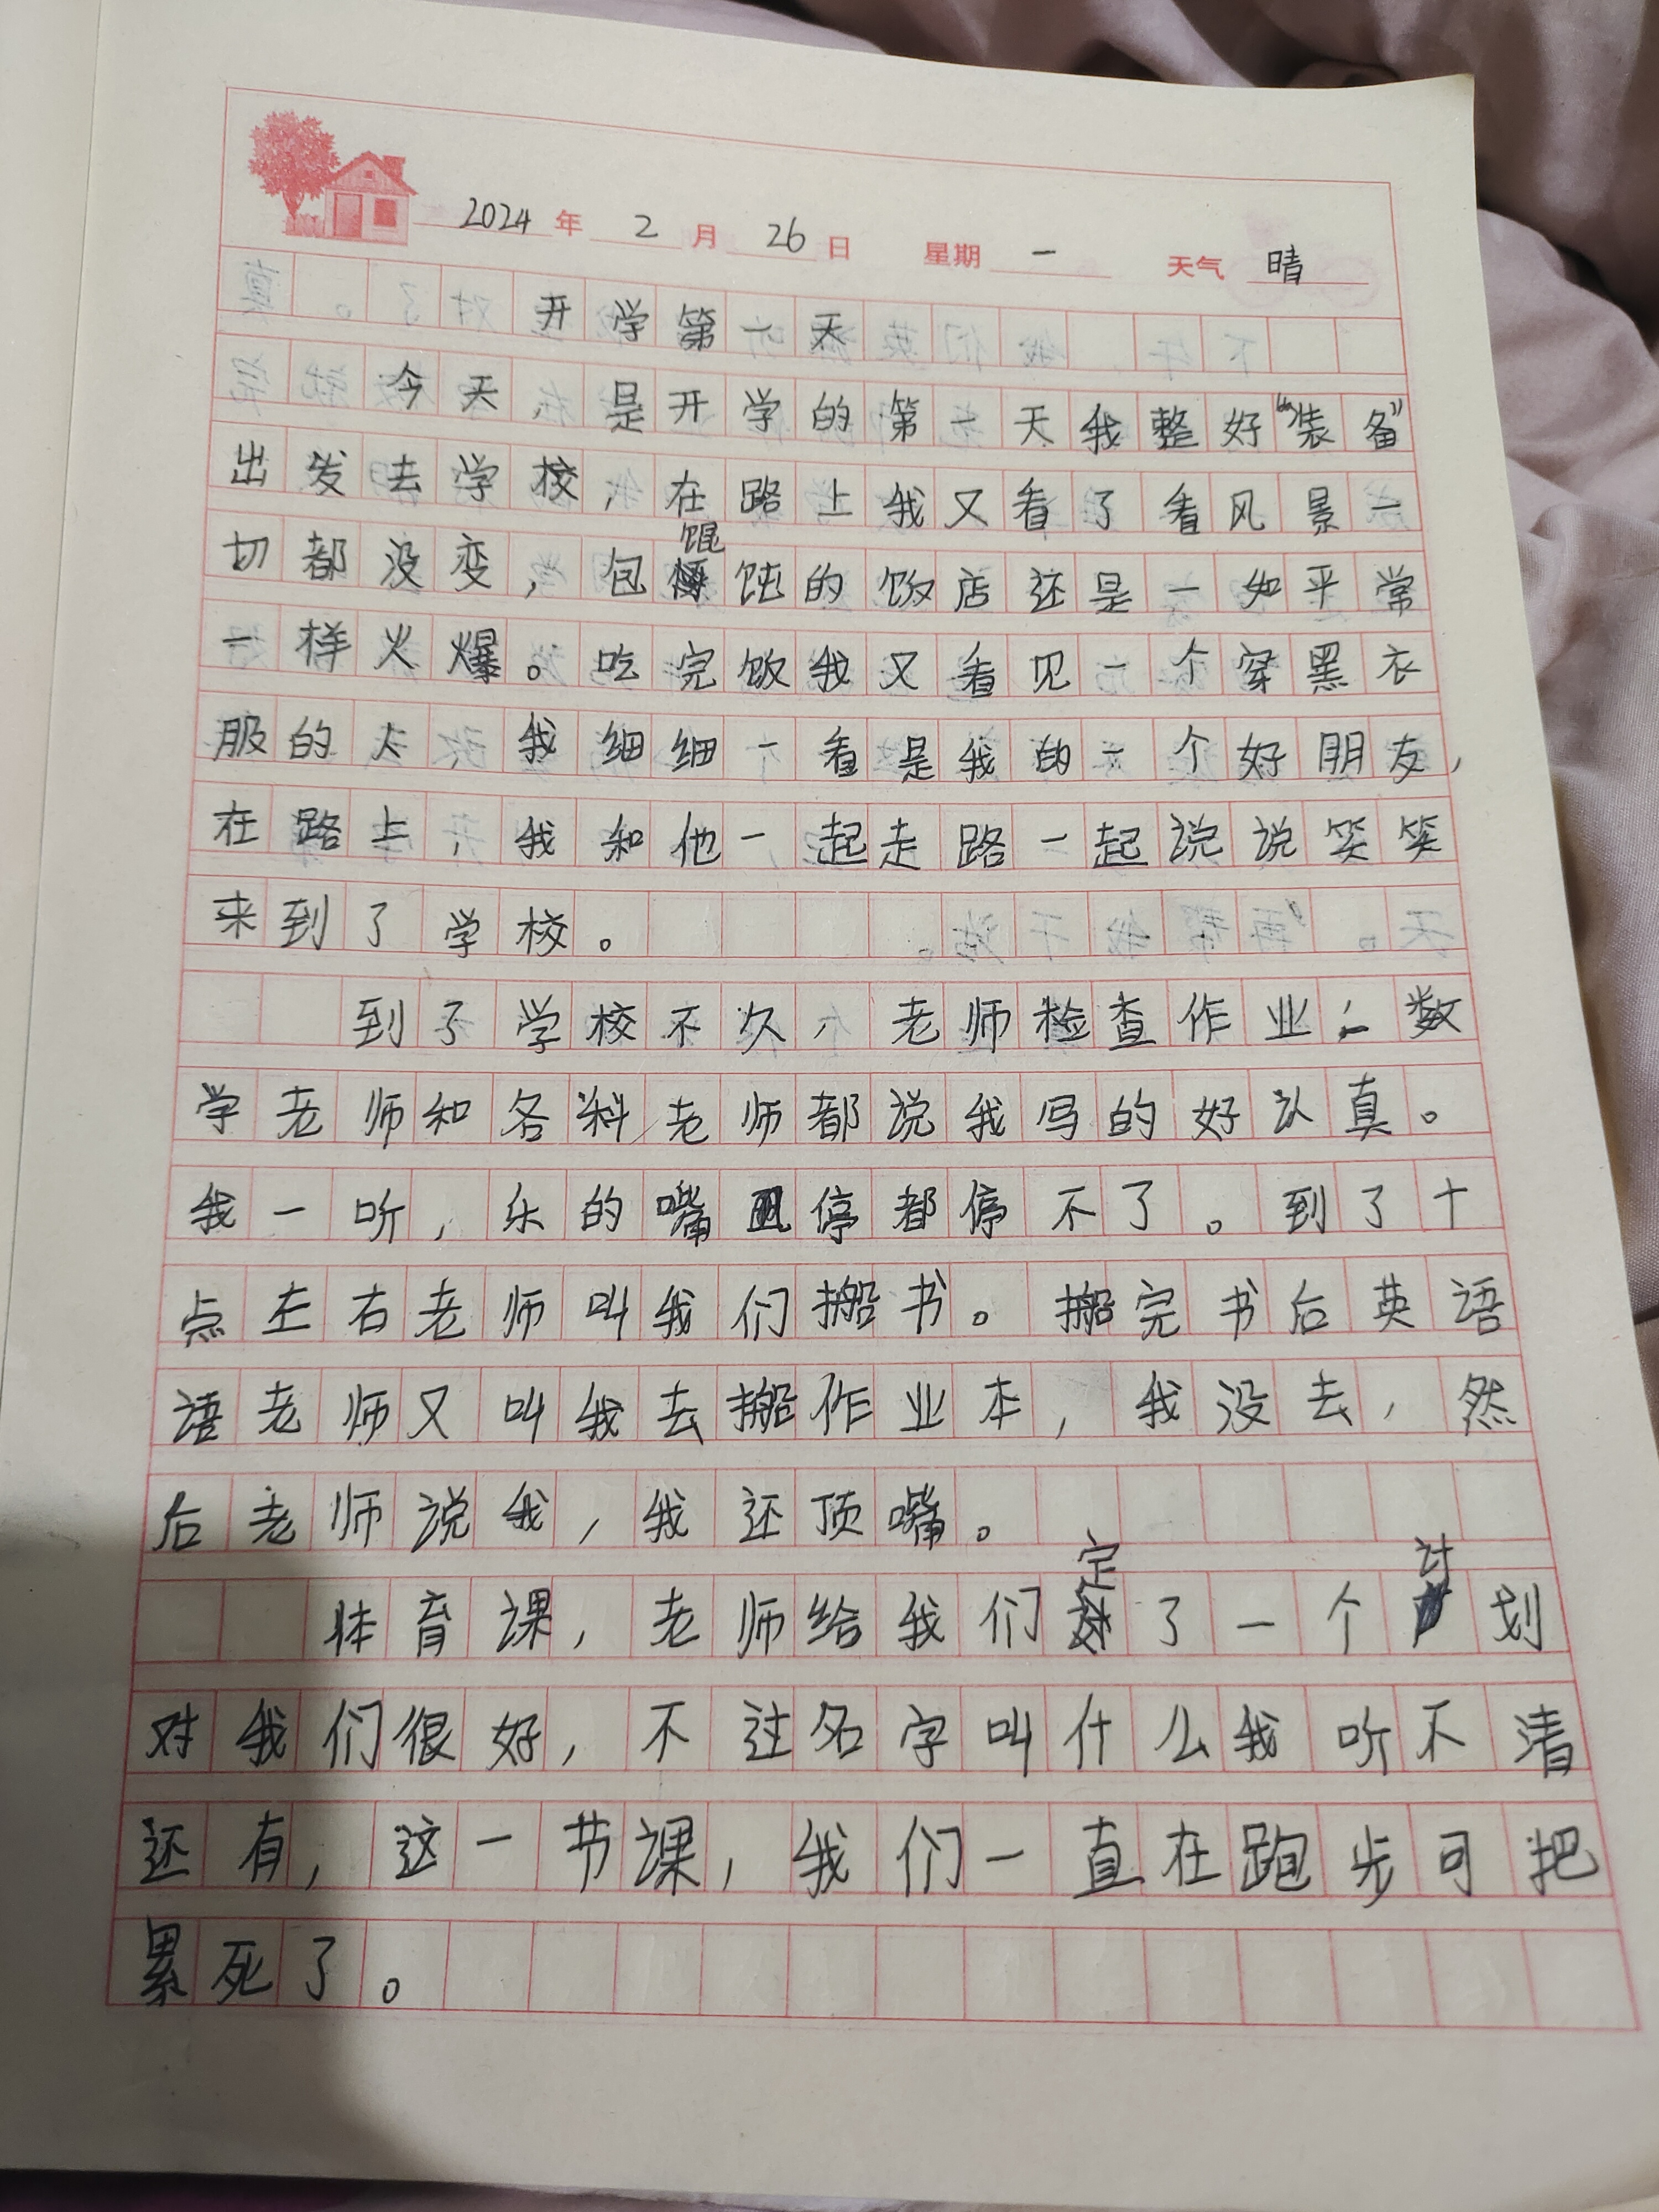 2024 年 2 月 26 日 星期 一 天气 晴
开学第一天
今天是开学的第一天我整好“装备”
出发去学校,在路上我又看了看风景一
切都没变,包馄饨的饭店还是一如平常
一样火爆。吃完饭我又看见一个穿黑衣
服的人 我细细一看是我的一个好朋友,
在路上,我和他一起走路一起说说笑笑
来到了学校。
到了学校不久,老师检查作业,数
学老师和各科老师都说我写的好认真。
我一听,乐的嘴停都停不了。到了十
点左右老师叫我们搬书。搬完书后英语
语老师又叫我去搬作业本,我没去,然
后老师说我,我还顶嘴。
体育课,老师给我们定了一个计划
对我们很好,不过名字叫什么我听不清
还有,这一节课,我们一直在跑步可把
累死了。